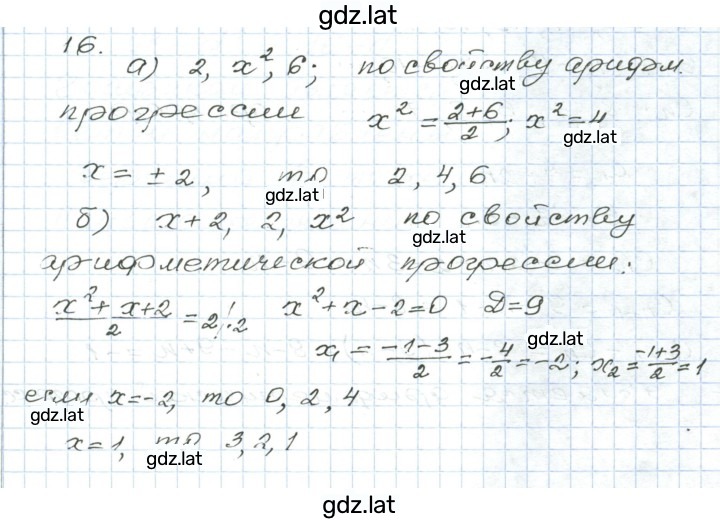 gdz.lat
16.
а) 2, x², 6; по свойству арифм.
gdz.lat
прогрессии x² = (2+6)/2; x² = 4
gdz.lat gdz.lat
x = ± 2, то 2, 4, 6
gdz.lat
б) x+2, 2, x² по свойству
gdz.lat
арифметической прогрессии:
(x² + x + 2)/2 = 2 | · 2 x² + x - 2 = 0 Д = 9
gdz.lat
x₁ = (-1-3)/2 = -4/2 = -2; x₂ = (-1+3)/2 = 1
если x = -2, то 0, 2, 4
gdz.lat gdz.lat
x = 1, то 3, 2, 1
gdz.lat
gdz.lat